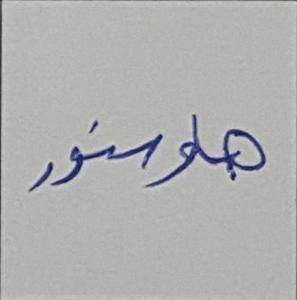 هلو سنور